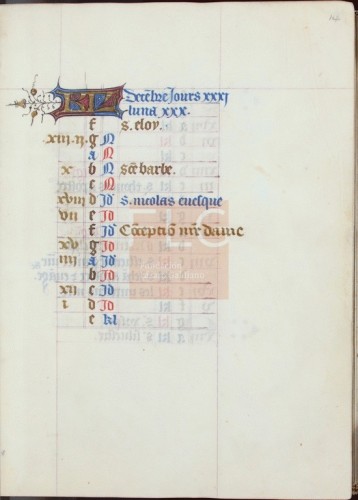 KL Decēbre Jours xxxj
luna xxx.
f s. eloy.
xiii. ii. g N
a N
x b N sc̄e barbe.
c N
xviii d Id s. nicolas euesque
vii e Id
f Id Cōception nr̄e dame
xv g Id
iiii a Id
b Id
xii c Id
i d Id
e kl